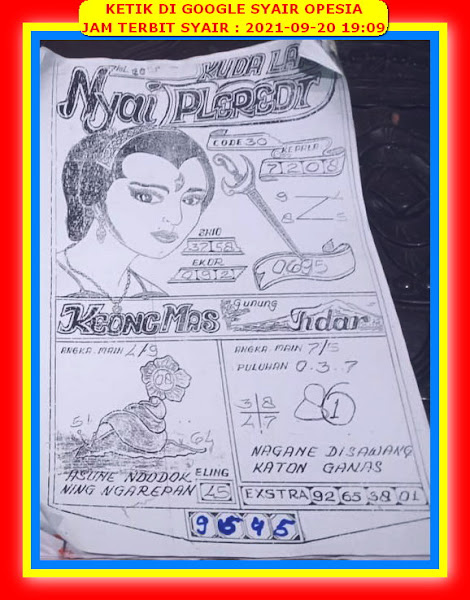 KETIK DI GOOGLE SYAIR OPESIA
JAM TERBIT SYAIR : 2021-09-20 19:09
KUDA LA
Nyai PLEREDT
CODE 30
KEPALA
7208
9 4
8 5
2HIO
3768
EKOR
092
0695
KEONG MAS
Gunung
Tidar
ANGKA MAIN 4/9
08
51
64
ASUNE NDODOK
NING NGAREPAN
ELING
45
ANGKA MAIN 7/5
PULUHAN 0.3.7
3 8
4 7
86
1
NAGANE DISAWANG
KATON GANAS
EXSTRA 92 65 38 01
9545